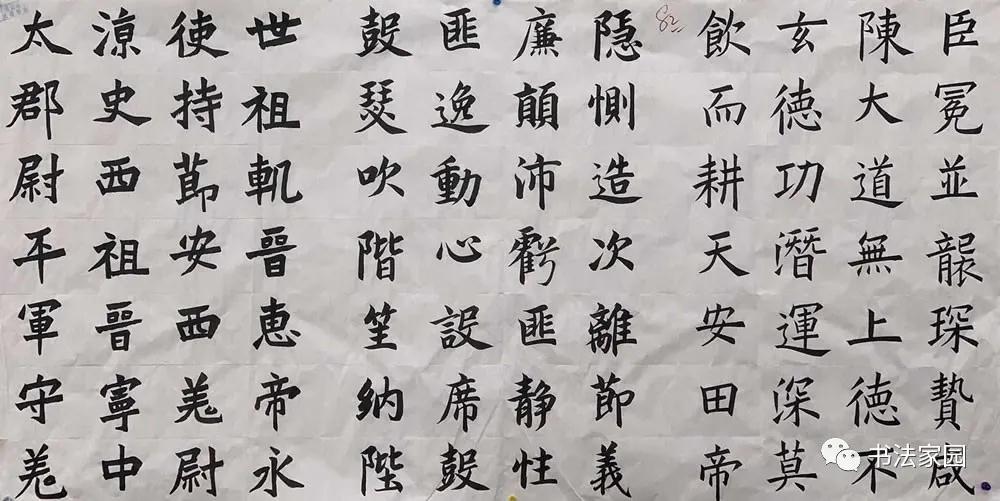 臣冕並襲琛贄咸
陳大道無上德不
玄德功潛運深莫
飲而耕天安田帝
82
隐惻造次離節義
廉顛沛虧匪静性
匪逸動心設席鼓
鼓瑟吹階笙納陛
世祖軌晉惠帝永
使持節安西羌尉
涼史西祖晉寧中
太郡尉平軍守羌
书法家园